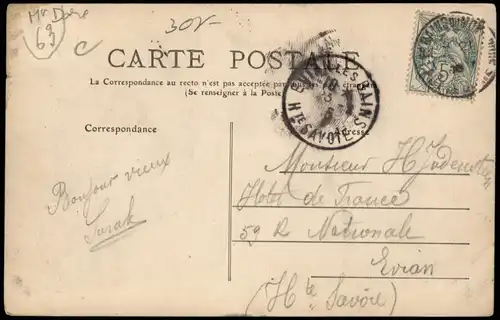 Mt Dore
63
C
30F-
CARTE POSTALE
La Correspondance au recto n'est pas acceptée par
(Se renseigner à la Poste
Correspondance
Adresse
LES BAINS
Hte SAVOIE
5
Bonjour vieux
Sarah
Monsieur H.
Hotel de France
59 R Nationale
Evian
(Hte Savoie)